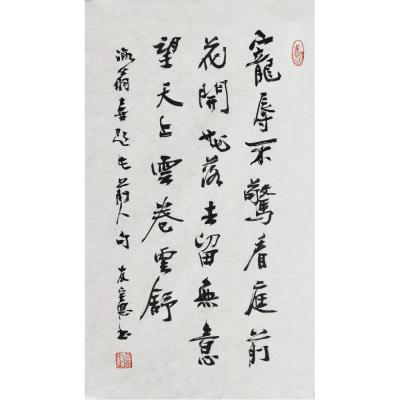 寵辱不驚看庭前
花開花落去留無意
望天上雲卷雲舒
翁喜題前人句 友憲書